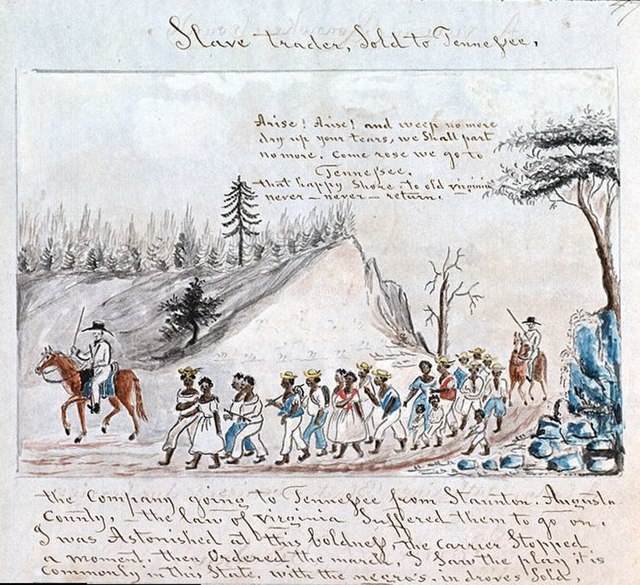 Slave trader, Sold to Tennessee,
Arise! Arise! and weep no more
dry up your tears, we Shall part
no more. Come rose we go to
Tennessee.
that happy Shore, to old virginia
never — never — return.
the Company going to Tennessee from Staunton. Augusta
County; — the law of virginia Suffered them to go on.
I was Astonished at this boldness, the carrier Stopped
a moment. then Ordered the march, I Saw the play it is
Commonly in this State. with the negro's in droves Sold.